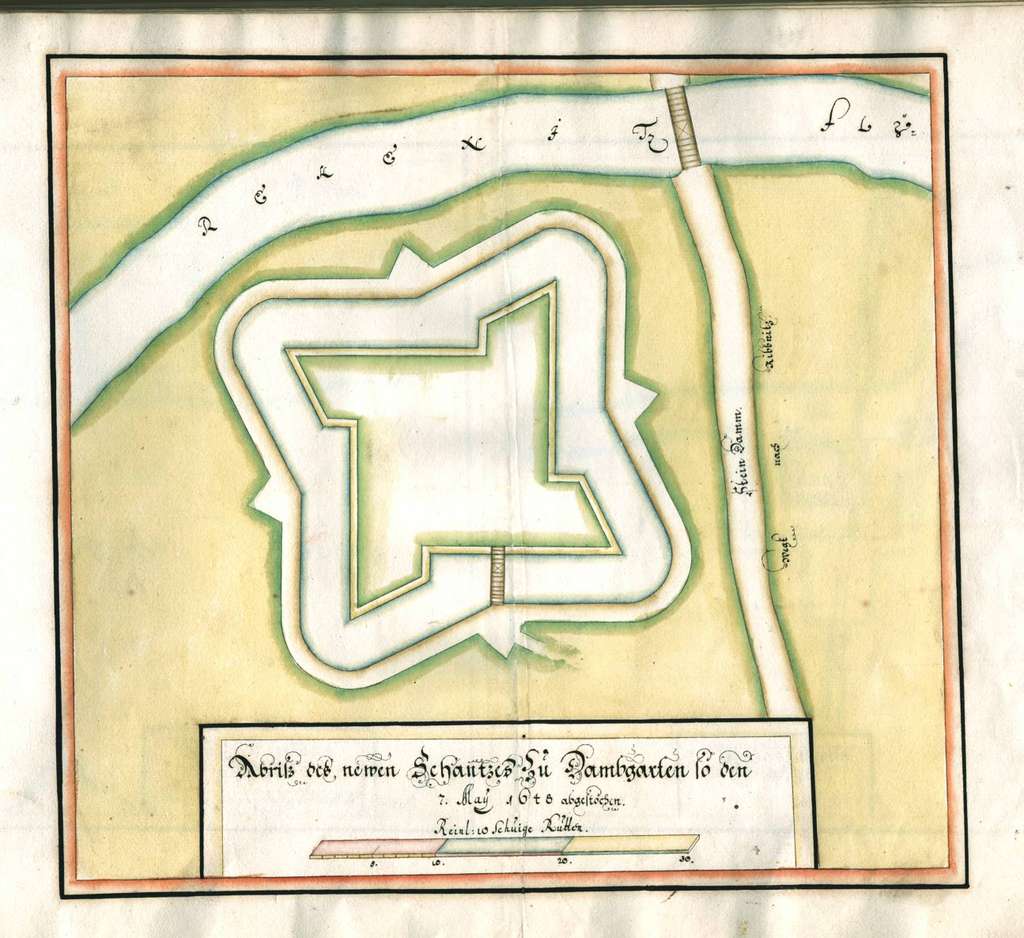 REKENITZ FLVS:
Stein Damm.
Wegk nach Ribbnitz.
Abriß des newen Schantzes Zu Dambgarten so den
7. May 1648 abgestochen.
Reinl: 10 Schuige Rutten.
5. 10. 20. 30.